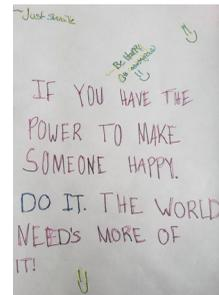 ~Just smile
~Be Happy
IF YOU HAVE THE
POWER TO MAKE
SOMEONE HAPPY.
DO IT. THE WORLD
NEED'S MORE OF
IT!